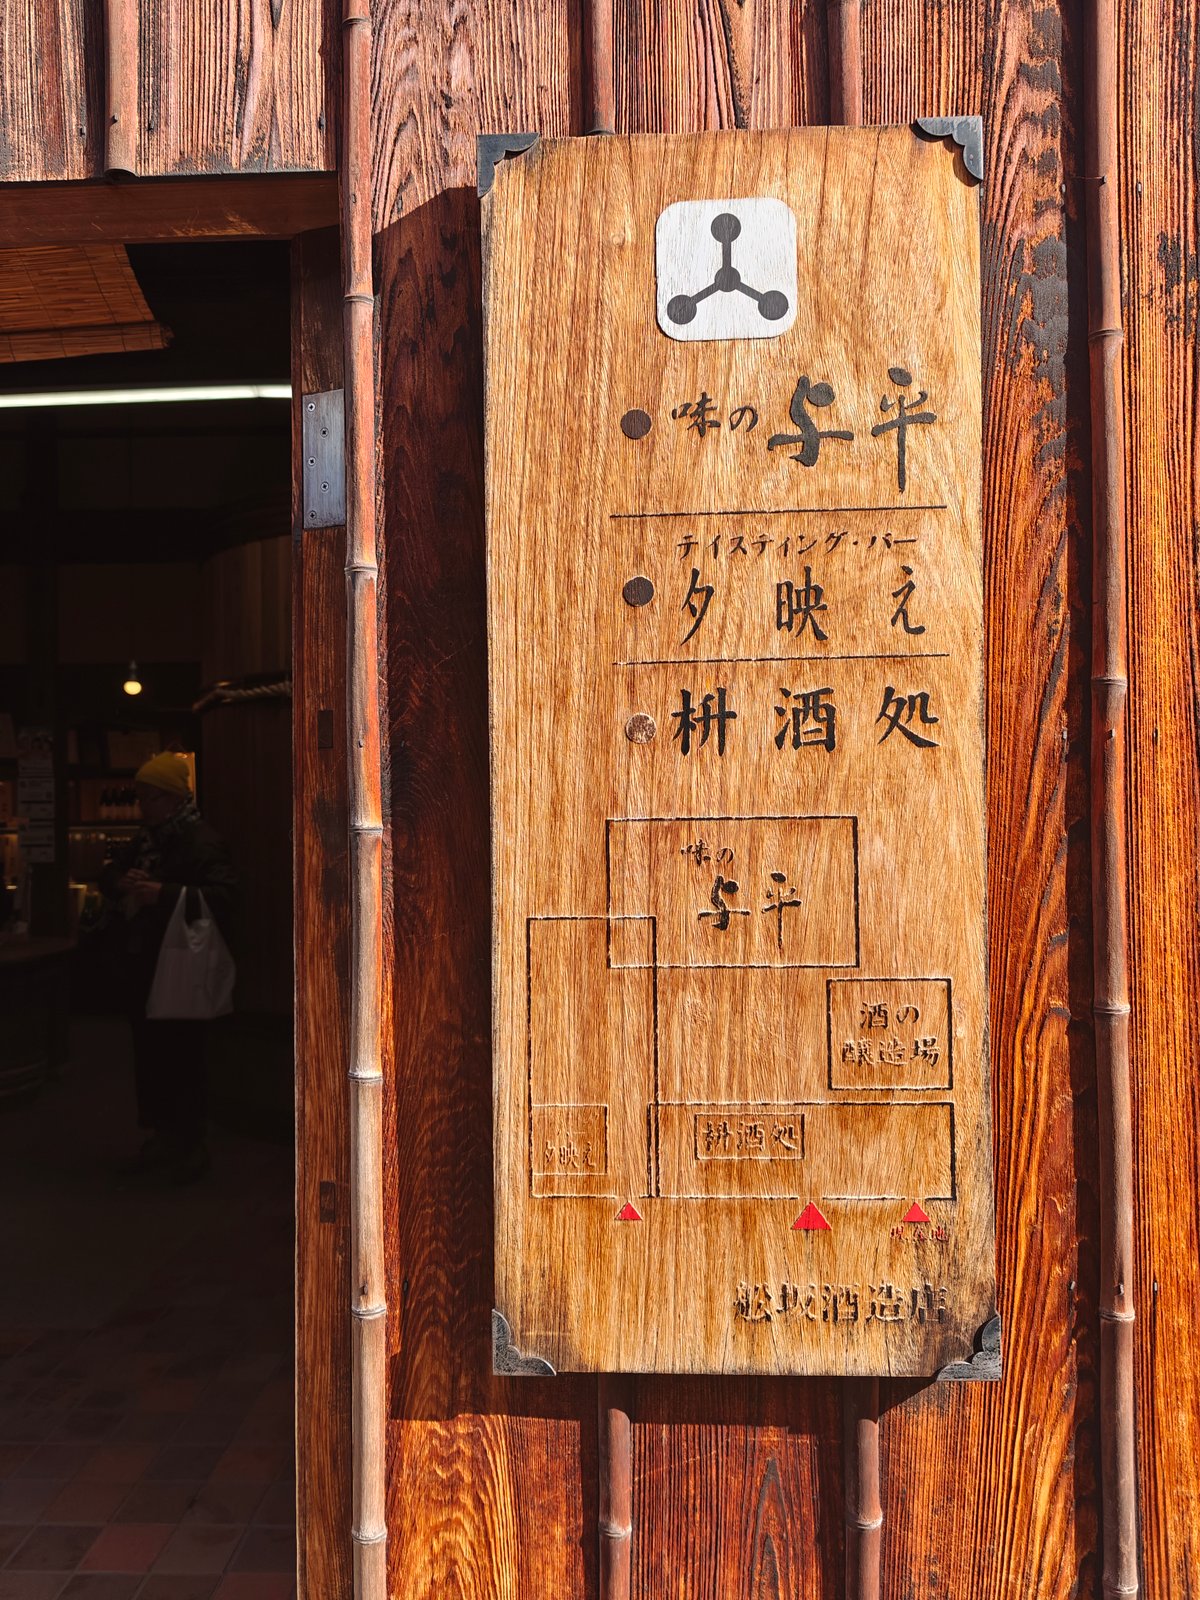 味の与平
テイスティング・バー
夕映え
枡酒処
味の
与平
酒の
醸造場
枡酒処
夕映え
現在地
舩坂酒造店